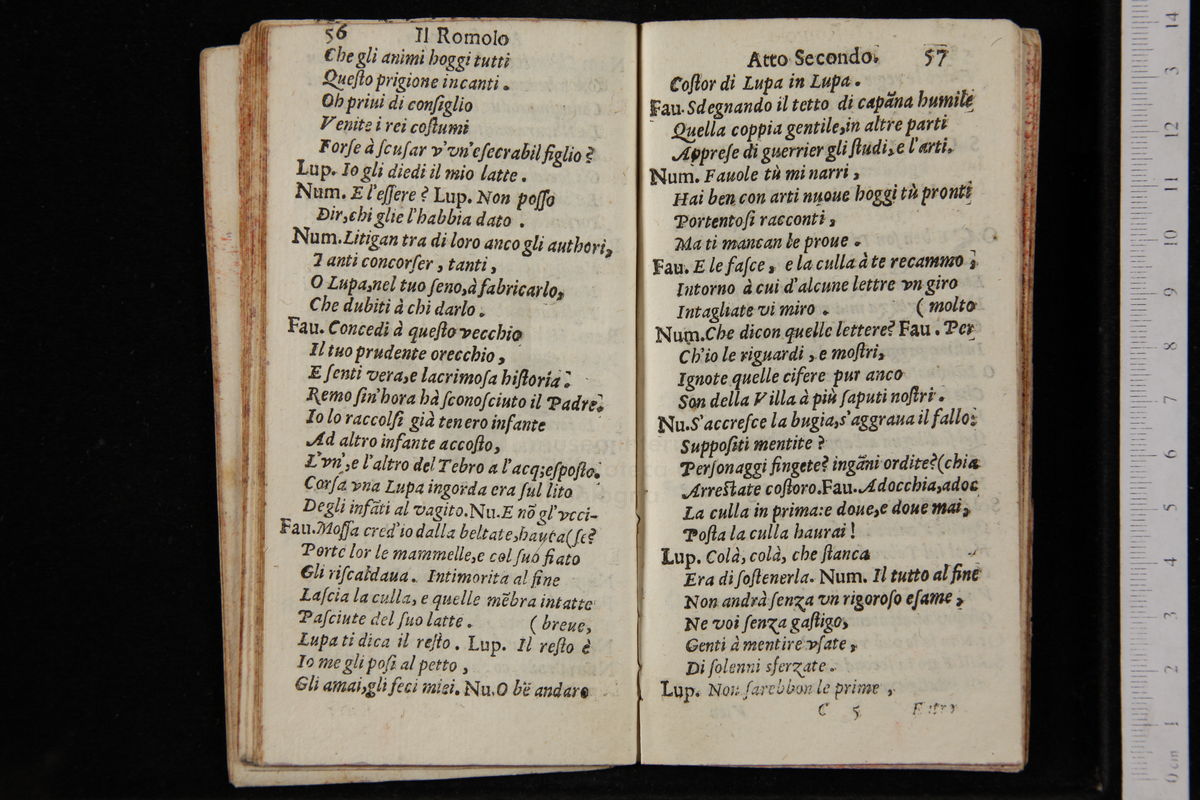 56 Il Romolo
Che gli animi hoggi tutti
Queſto prigione incanti.
Oh priui di conſiglio
Venite i rei coſtumi
Forſe à ſcuſar v'vn'eſecrabil figlio?
Lup. Io gli diedi il mio latte.
Num. E l'eſſere? Lup. Non poſſo
Dir, chi glie l'habbia dato.
Num. Litigan tra di loro anco gli authori,
Tanti concorſer, tanti,
O Lupa, nel tuo ſeno, à fabricarlo,
Che dubiti à chi darlo.
Fau. Concedi à queſto vecchio
Il tuo prudente orecchio,
E ſenti vera, e lacrimoſa hiſtoria.
Remo ſin'hora hà ſconoſciuto il Padre.
Io lo raccolſi già tenero infante
Ad altro infante accoſto,
L'vn', e l'altro del Tebro a l'acq; eſpoſto.
Corſa vna Lupa ingorda era ſul lito
Degli infãti al vagito. Nu. E nõ gl'vcci-
Fau. Moſſa cred'io dalla beltate, hauta (ſe?
Porte lor le mammelle, e col ſuo fiato
Gli riſcaldaua. Intimorita al fine
Laſcia la culla, e quelle mẽbra intatte
Paſciute del ſuo latte. (breue,
Lupa ti dica il reſto. Lup. Il reſto è
Io me gli poſi al petto,
Gli amai, gli feci miei. Nu. O bẽ andaro
Atto Secondo. 57
Coſtor di Lupa in Lupa.
Fau. Sdegnando il tetto di capãna humile
Quella coppia gentile, in altre parti
Appreſe di guerrier gli ſtudi, e l'arti.
Num. Fauole tù mi narri,
Hai ben con arti nuoue hoggi tù pronti
Portentoſi racconti,
Ma ti mancan le proue.
Fau. E le faſce, e la culla à te recammo;
Intorno à cui d'alcune lettre vn giro
Intagliate vi miro. (molto
Num. Che dicon quelle lettere? Fau. Per
Ch'io le riguardi, e moſtri,
Ignote quelle cifere pur anco
Son della Villa à più ſaputi noſtri.
Nu. S'accreſce la bugia, s'aggraua il fallo:
Suppoſiti mentite?
Perſonaggi fingete? ingãni ordite? (chia
Arreſtate coſtoro. Fau. Adocchia, adoc
La culla in prima: e doue, e doue mai,
Poſta la culla haurai!
Lup. Colà, colà, che ſtanca
Era di ſoſtenerla. Num. Il tutto al fine
Non andrà ſenza vn rigoroſo eſame,
Ne voi ſenza gaſtigo,
Genti à mentire vſate,
Di ſolenni sferzate.
Lup. Non ſarebbon le prime,
C 5
14
3
13
12
11
10
9
8
7
6
2
5
4
3
1
2
1
0 cm